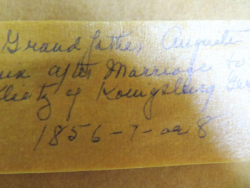 Grandfather August
after Marriage to
of Konigsberg Ger
1856-7-or 8